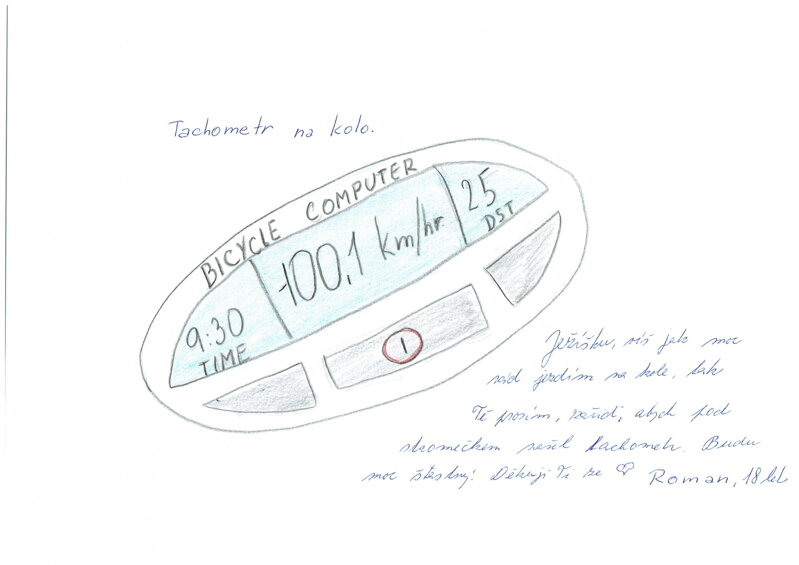 Tachometr na kolo.
BICYCLE COMPUTER
9:30
TIME
100,1 km/hr
25
DST
1
Ježíšku, víš jak moc
rád jezdím na kole, tak
Tě prosím, zařiď, abych pod
stromečkem našel tachometr. Budu
moc šťastný! Děkuji Ti ze ♡ Roman, 18 let